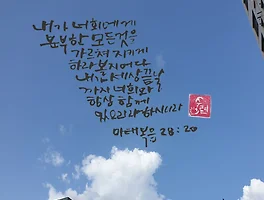 내가 너희에게
분부한 모든것을
가르쳐 지키게
하라 볼지어다
내가 세상 끝날
까지 너희와
항상 함께
있으리라 하시니라
마태복음 28:20